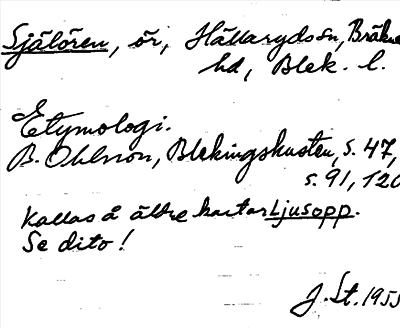 Själören, ör, Hällarydssn, Bräkne
hd, Blek. l.
Etymologi.
B. Ohlsson, Blekingskusten, s. 47,
s. 91, 120
Kallas å äldre kartor Ljusopp.
Se dito!
J. St. 1955